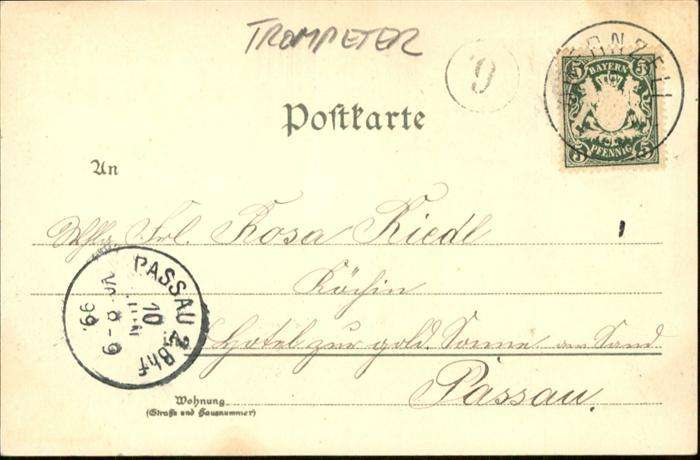 TROMPETER
9
5 BAYERN 5
5 PFENNIG 5
Postkarte
An
Frl. Rosa Riedl
Köchin
Hotel zur gold. Sonne am Sand
Passau.
PASSAU 2 Bhf
10
8-9
99.
Wohnung
(Straße und Hausnummer)